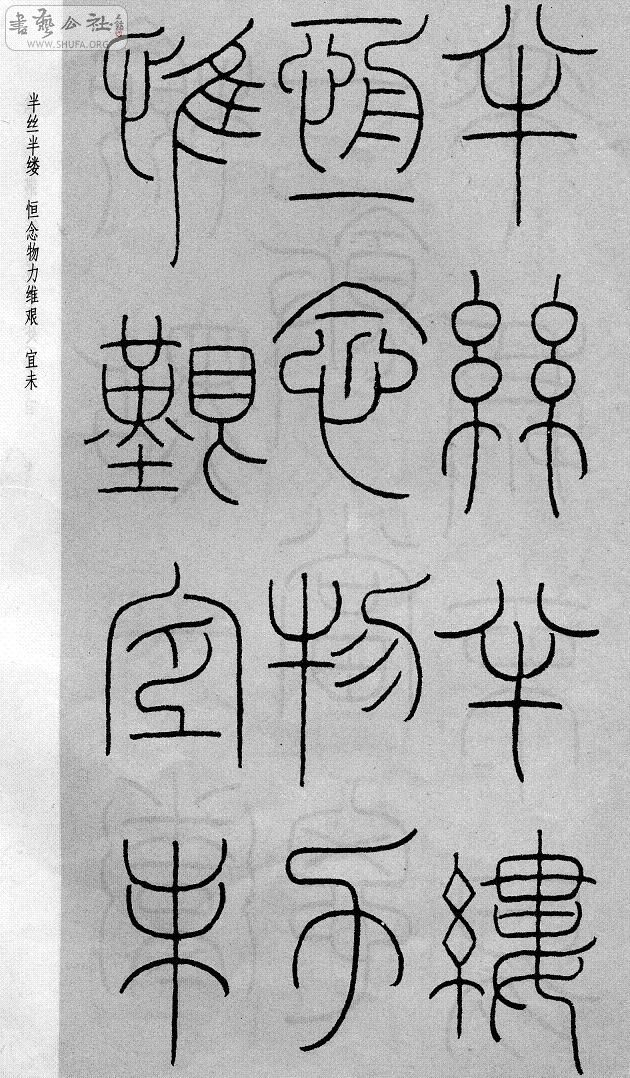 書藝公社
WWW.SHUFA.ORG
半絲半縷
恆念物力
惟艱宜未
半丝半缕 恒念物力维艰 宜未